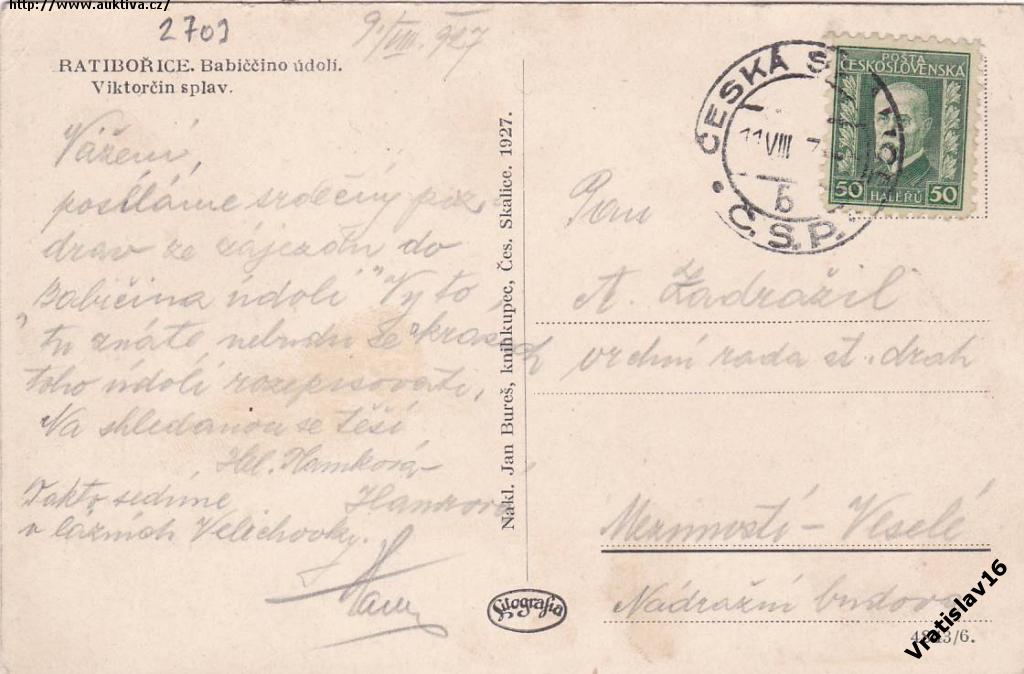 http://www.auktiva.cz/
2709
9./VIII. 927
RATIBOŘICE. Babiččino údolí.
Viktorčin splav.
Vážení,
posíláme srdečný poz
drav ze zájezdu do
"Babičina údolí" Vy to
tu znáte nebudu se o krás
toho údolí rozepisovati,
Na shledanou se těší
Hel. Hanková
Takto sedíme
v lázních Velichovky.
Nakl. Jan Bureš, knihkupec, Čes. Skalice. 1927.
ČESKÁ
11 VIII
b
Č.S.P.
POŠTA
ČESKOSLOVENSKÁ
50 HALÉŘŮ 50
Pan
A. Zadražil
vrchní rada st. drah
Mezimostí – Veselé
Nádražní budova
Litografia
/6.
Vratislav16